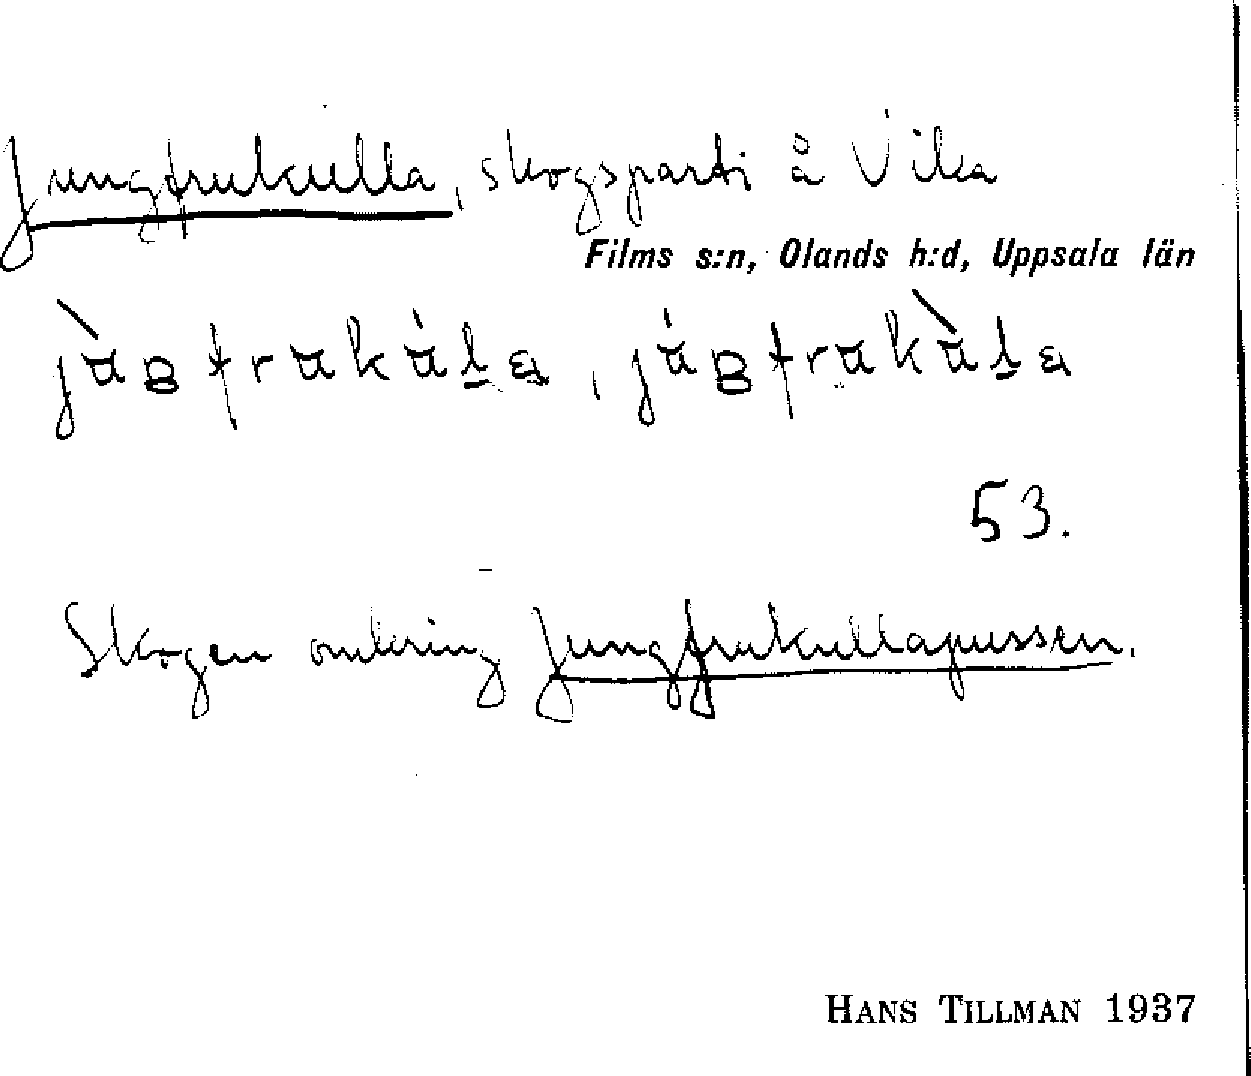 Jungfrukulla, skogsparti å Vika
Films s:n, Olands h:d, Uppsala län
53.
Skogen omkring Jungfrukullapussen.
HANS TILLMAN 1937